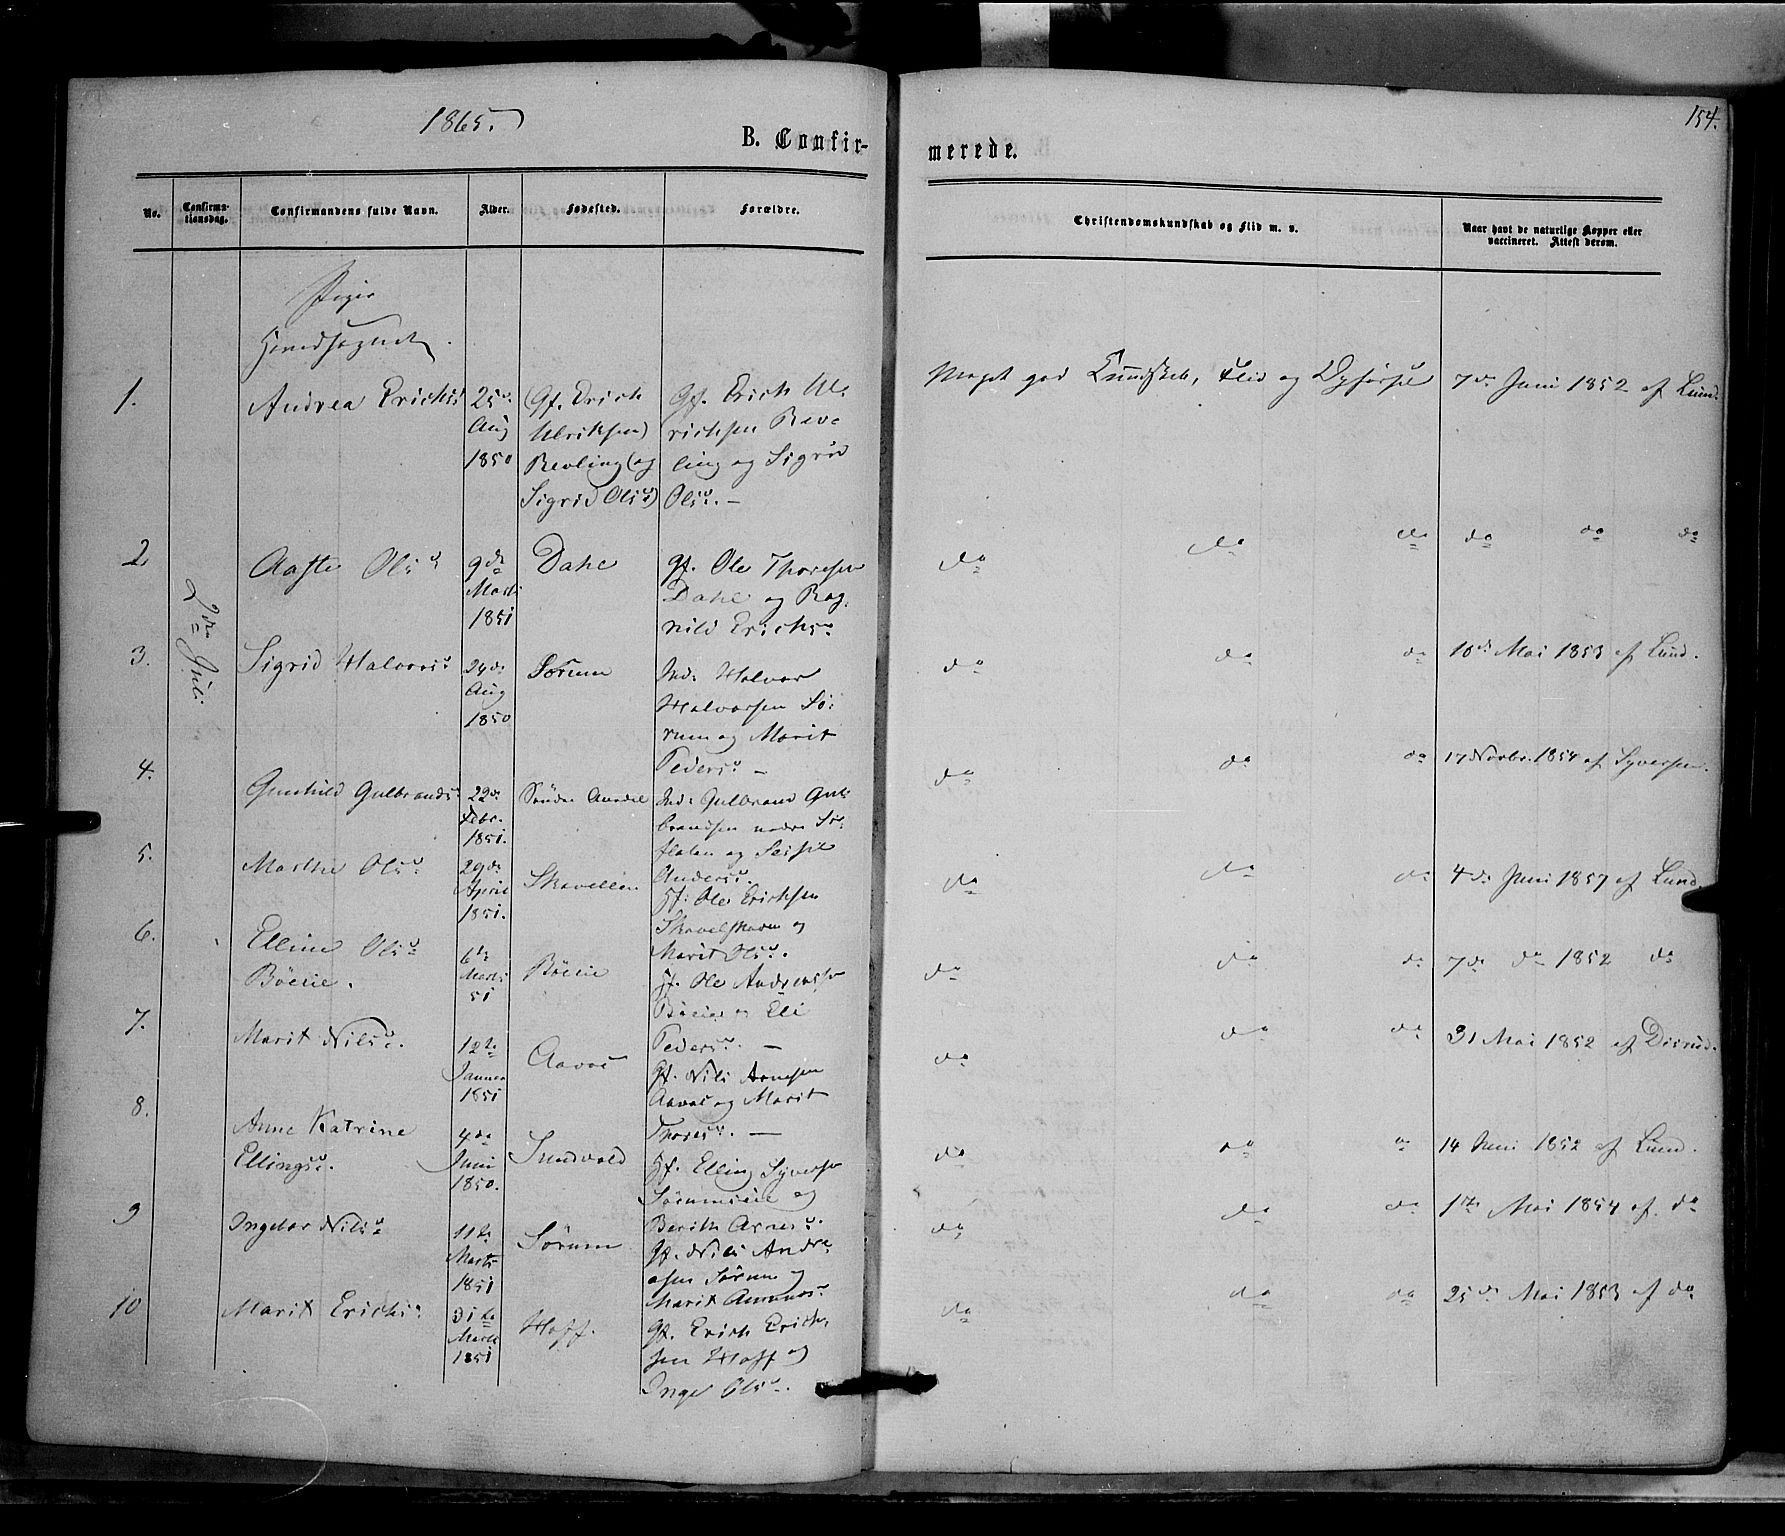 1865.
154.
B. Confirmerede.
No.
Confirmationsdag.
Confirmandens fulde Navn.
Alder.
Fødested.
Forældre.
Christendomskundskab og Flid m. v.
Naar havt de naturlige Kopper eller vaccineret. Attest derom.
Piger
Hovedsognet.
2den Juli.
1. Andrea Erichsd.
25de Aug 1850
(Gf. Erich
Ulriksen)
Revling (og
Sigrid Olsd.)
Gf. Erich Ul-
richsen Rev-
ling og Sigrid
Olsd. —
Meget god Kundskab, Flid og Opførsel
7de Juni 1852 af Lund.
2. Aaste Olsd.
9de Marts 1851
Dahl
Gf. Ole Thoresen
Dahl og Rag-
nild Erichsd.
do do do
do do do
3. Sigrid Halvorsd.
24de Aug 1850
Sørum
Ind. Halvor
Halvorsen Sø-
rum og Marit
Pedersd. —
do do do
18de Mai 1853 af Lund.
4. Gunhild Gulbrandsd.
22de Febr. 1851.
Søndre Aurdal
Ind. Gulbrand Gul-
brandsen nedre
og
Andersd.
do do do
17 Novbr. 1854 af Syversen.
5. Marthe Olsd.
29de April 1851.
Gf. Ole Erichsen
og
Marit Olsd.
do do do
4de Juni 1857 af Lund.
6. Elline Olsd.
Bøeie.
6te Marts 51
Bøeie
Gf. Ole Andreassen
Bøeie og Eli
Pedersd. —
do do do
7de do 1852 do
7. Marit Nilsd.
12te Januar 1851
Gf. Nils Arnesen
og Marit
Thoresd. —
do do do
31 Mai 1852 af Disrud.
8. Anne Katrine
Ellingsd.
4de Juni 1850.
Sundvold
Gf. Elling Syversen
Sørumseie og
Berith Arnesd.
do do do
14 Juni 1852 af Lund.
9 Ingebor Nilsd.
11te Marts 1851
Sørum
Gf. Nils Andre-
asen Sørum og
Marit Amundsd.
do do do
1ste Mai 1854 af do
10 Marit Erichsd.
31te Marts 1851
Hoff.
Gf. Erich Erich-
sen Hoff og
Inger Olsd.
do do do
25de Mai 1853 af do